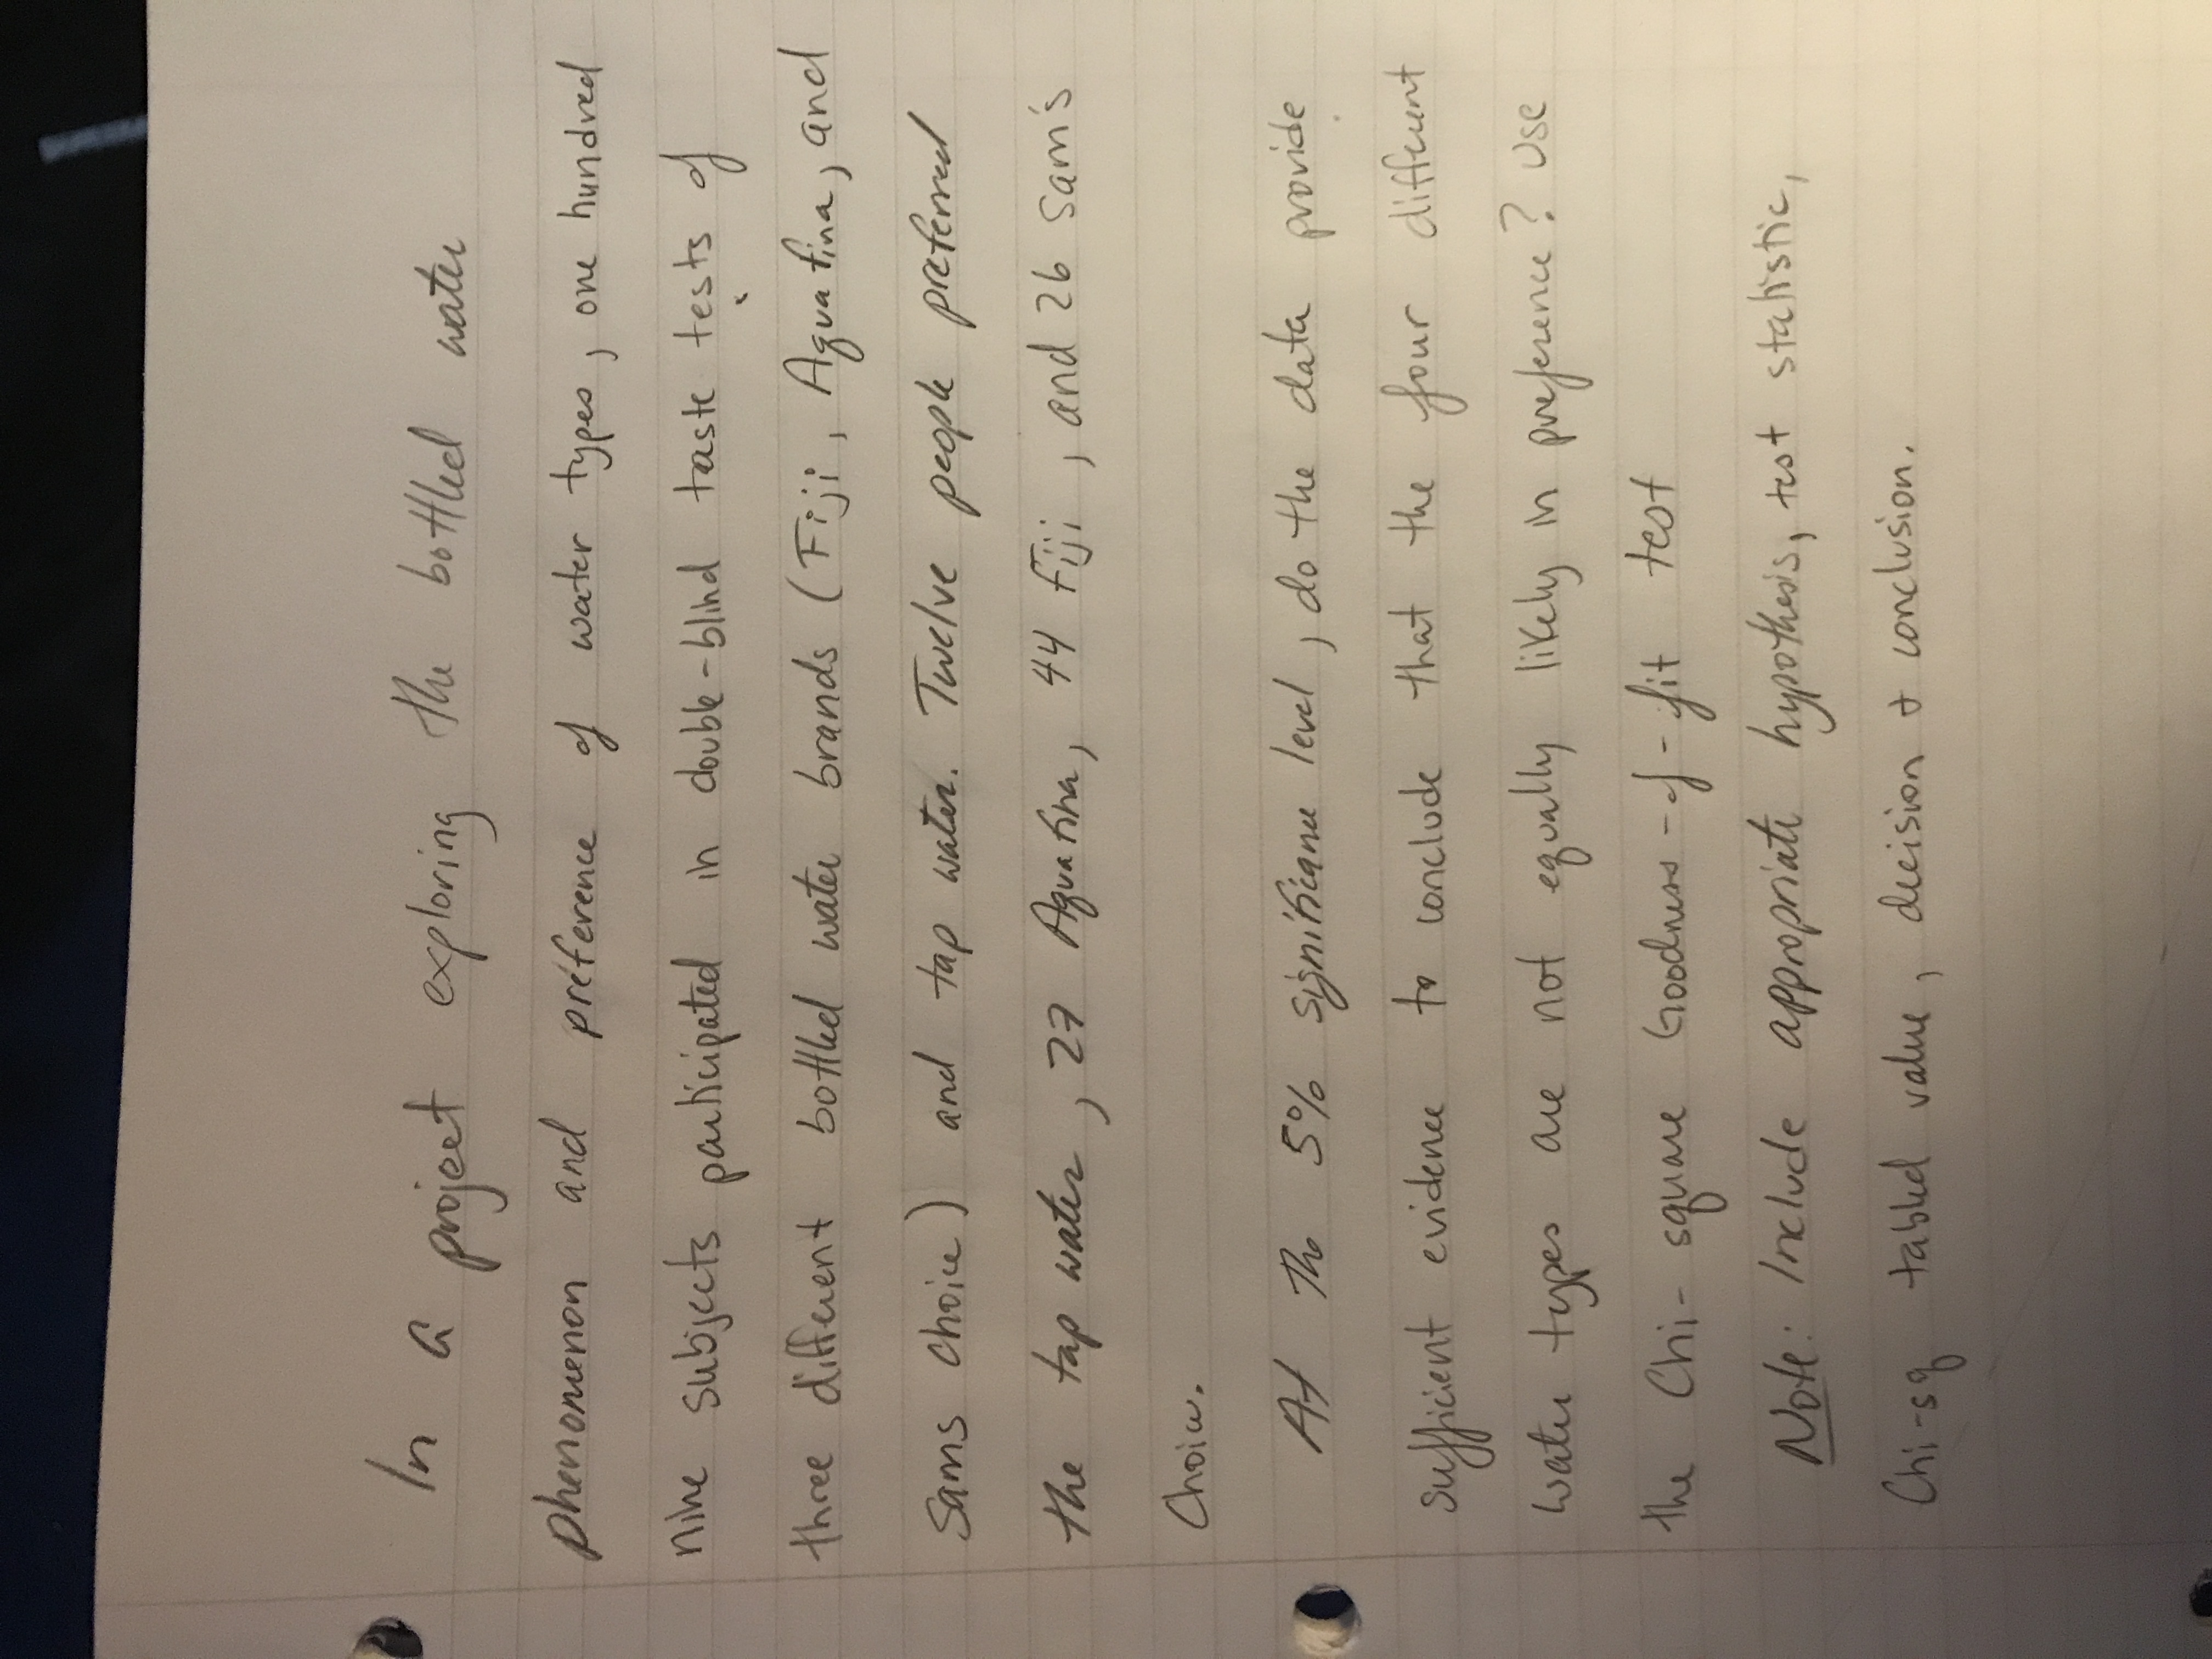 In a project exploring the bottled water
phenomenon and preference of water types, one hundred
nine subjects participated in double-blind taste tests of
three different bottled water brands (Fiji, Aquafina, and
Sams choice) and tap water. Twelve people preferred
the tap water, 27 Aquafina, 44 Fiji, and 26 Sam's
Choice.
At the 5% significance level, do the data provide
sufficient evidence to conclude that the four different
water types are not equally likely in preference? use
the Chi-square Goodness-of-fit test
Note: Include appropriate hypothesis, test statistic,
Chi-sq tabled value, decision & conclusion.